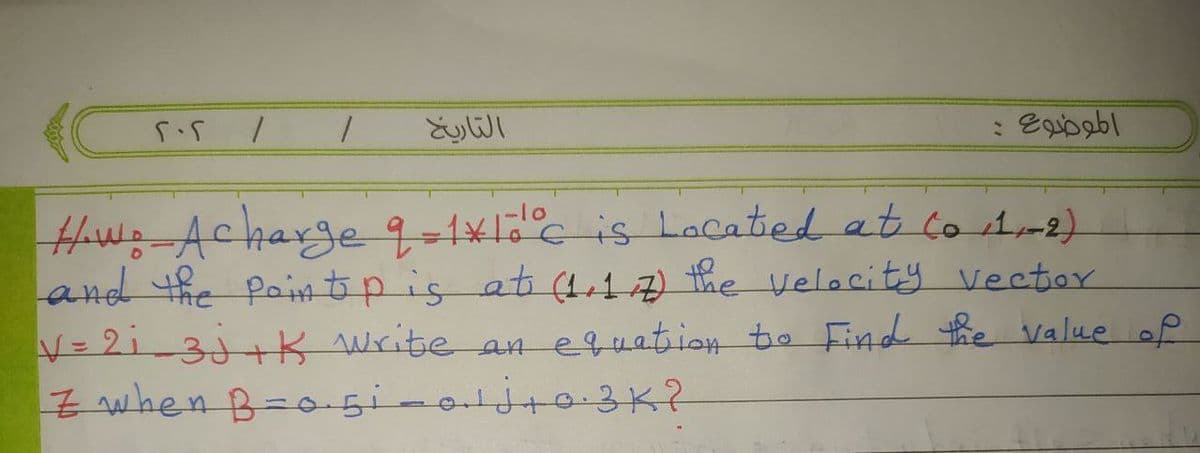 الموضوع : التاريخ / / ٢٠٢
H.W:- A charge q=1*10^-10 c is Located at (0,1,-2)
and the Point p is at (1,1,Z) the velocity vector
V=2i-3j+K write an equation to Find the value of
Z when B=0.5i-0.1j+0.3K?